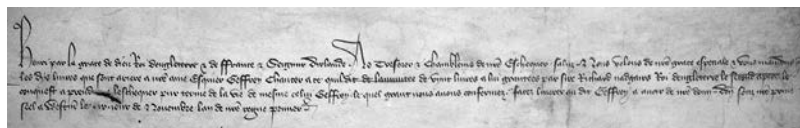 Henri par la grace de dieu Roi dengleterre & de ffrance & Seignur dirlande As Tresorer & Chambleins de nre Eschequer saluz Nous volons de nre grace especiale & vous mandons
les dis livres que sont arere a nre ame Esquier Geffrey Chaucer a ce quil dit de lannuitee de vynt livres a lui grauntees par sire Richard nadgairs Roi dengleterre le second apres le
conquest a prendre a leschequer pur terme de la vie de mesme celui Geffrey le quel graunt nous avons confermez facez liverer au dit Geffrey a avoir de nre doun Don souz nre prive
seel a Westm le jour de Novembre lan de nre regne primer